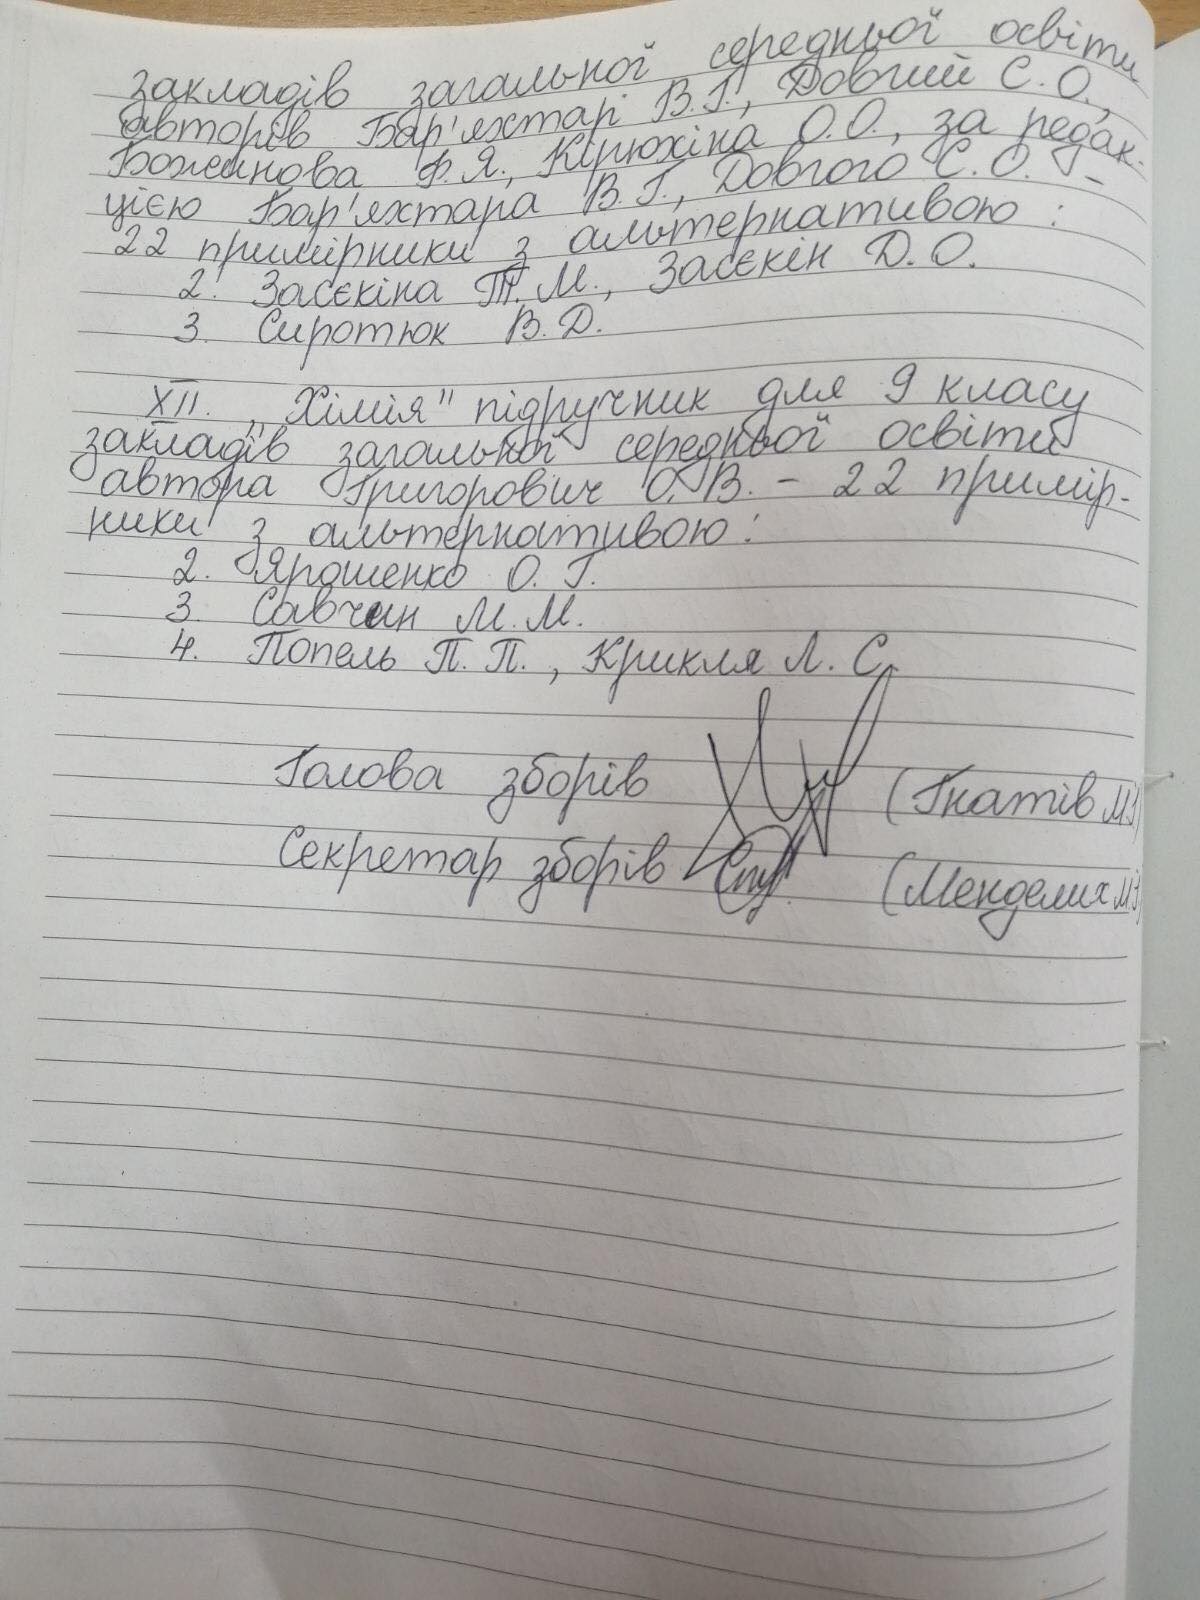 закладів загальної середньої освіти
авторів Бар'яхтарі В.Г., Довгий С.О.,
Божинова Ф.Я., Кірюхіна О.О., за редак-
цією Бар'яхтара В.Г., Довгого С.О. -
22 примірники з альтернативою:
2. Засєкіна Т.М., Засєкін Д.О.
3. Сиротюк В.Д.
XII. „Хімія" підручник для 9 класу
закладів загальної середньої освіти
автора Григорович О.В. - 22 примір-
ники з альтернативою:
2. Ярошенко О.Г.
3. Савчин М.М.
4. Попель П.П., Крикля Л.С.
Голова зборів (Гнатів М
Секретар зборів (Менделих М